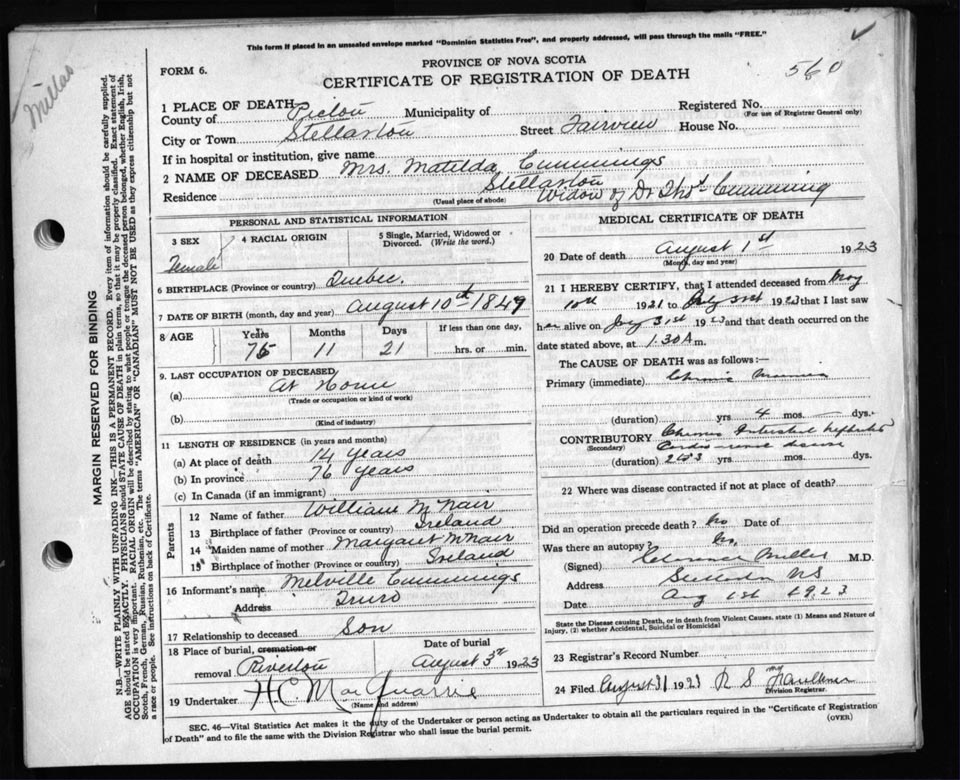 This form if placed in an unsealed envelope marked "Dominion Statistics Free", and properly addressed, will pass through the mails "FREE."
Millas
PROVINCE OF NOVA SCOTIA
FORM 6.
CERTIFICATE OF REGISTRATION OF DEATH
560
1 PLACE OF DEATH
County of Pictou Municipality of Registered No.
(For use of Registrar General only)
City or Town Stellarton Street Fairview House No.
If in hospital or institution, give name
2 NAME OF DECEASED Mrs. Matilda Cummings
Residence Stellarton Widow of Dr Thos Cumming
(Usual place of abode)
PERSONAL AND STATISTICAL INFORMATION
3 SEX 4 RACIAL ORIGIN 5 Single, Married, Widowed or Divorced. (Write the word.)
Female
6 BIRTHPLACE (Province or country) Quebec.
7 DATE OF BIRTH (month, day and year) August 10th 1847
8 AGE Years Months Days If less than one day,
11 21 hrs. or min.
9. LAST OCCUPATION OF DECEASED
(a) At Home
(Trade or occupation or kind of work)
(b)
(Kind of industry)
11 LENGTH OF RESIDENCE (in years and months)
(a) At place of death 14 years
(b) In province 76 years
(c) In Canada (if an immigrant)
Parents
12 Name of father William McNair
13 Birthplace of father (Province or country) Ireland
14 Maiden name of mother Margaret McNair
15 Birthplace of mother (Province or country) Ireland
16 Informant's name Melville Cummings
Address Truro
17 Relationship to deceased Son
18 Place of burial, cremation or removal Riverton
Date of burial August 3rd 1923
19 Undertaker H C MacQuarrie
(Name and address)
MEDICAL CERTIFICATE OF DEATH
20 Date of death August 1st 1923
(Month, day and year)
21 I HEREBY CERTIFY, that I attended deceased from May
10th 1921 to July 31st 1923 that I last saw
her alive on July 31st 1923 and that death occurred on the
date stated above, at 1.30 A m.
The CAUSE OF DEATH was as follows:—
Primary (immediate) Chronic
(duration) yrs 4 mos. — dys.
CONTRIBUTORY Chronic Interstitial Nephritis
(Secondary) Cardio disease
(duration) yrs mos. dys.
22 Where was disease contracted if not at place of death?
Did an operation precede death? No Date of
Was there an autopsy? No.
(Signed) Clarence Miller M.D.
Address Stellarton NS
Date Aug 1st 1923
State the Disease causing Death, or in death from Violent Causes, state (1) Means and Nature of
Injury, (2) whether Accidental, Suicidal or Homicidal
23 Registrar's Record Number
24 Filed August 31 1923 R S Faulkner
Division Registrar.
SEC. 46—Vital Statistics Act makes it the duty of the Undertaker or person acting as Undertaker to obtain all the particulars required in the "Certificate of Registration
of Death" and to file the same with the Division Registrar who shall issue the burial permit. (OVER)
MARGIN RESERVED FOR BINDING
N.B.—WRITE PLAINLY WITH UNFADING INK—THIS IS A PERMANENT RECORD. Every item of information should be carefully supplied.
AGE should be stated EXACTLY. PHYSICIANS should STATE CAUSE OF DEATH in plain terms, so that it may be properly classified. Exact statement of
OCCUPATION is very important. RACIAL ORIGIN will be described by stating to what people or tongue the deceased person belonged, whether English, Irish,
Scotch, French, German, Russian, Ruthenian, etc. The terms "AMERICAN" or "CANADIAN" MUST NOT BE USED as they express citizenship but not
a race or people. See instructions on back of Certificate.